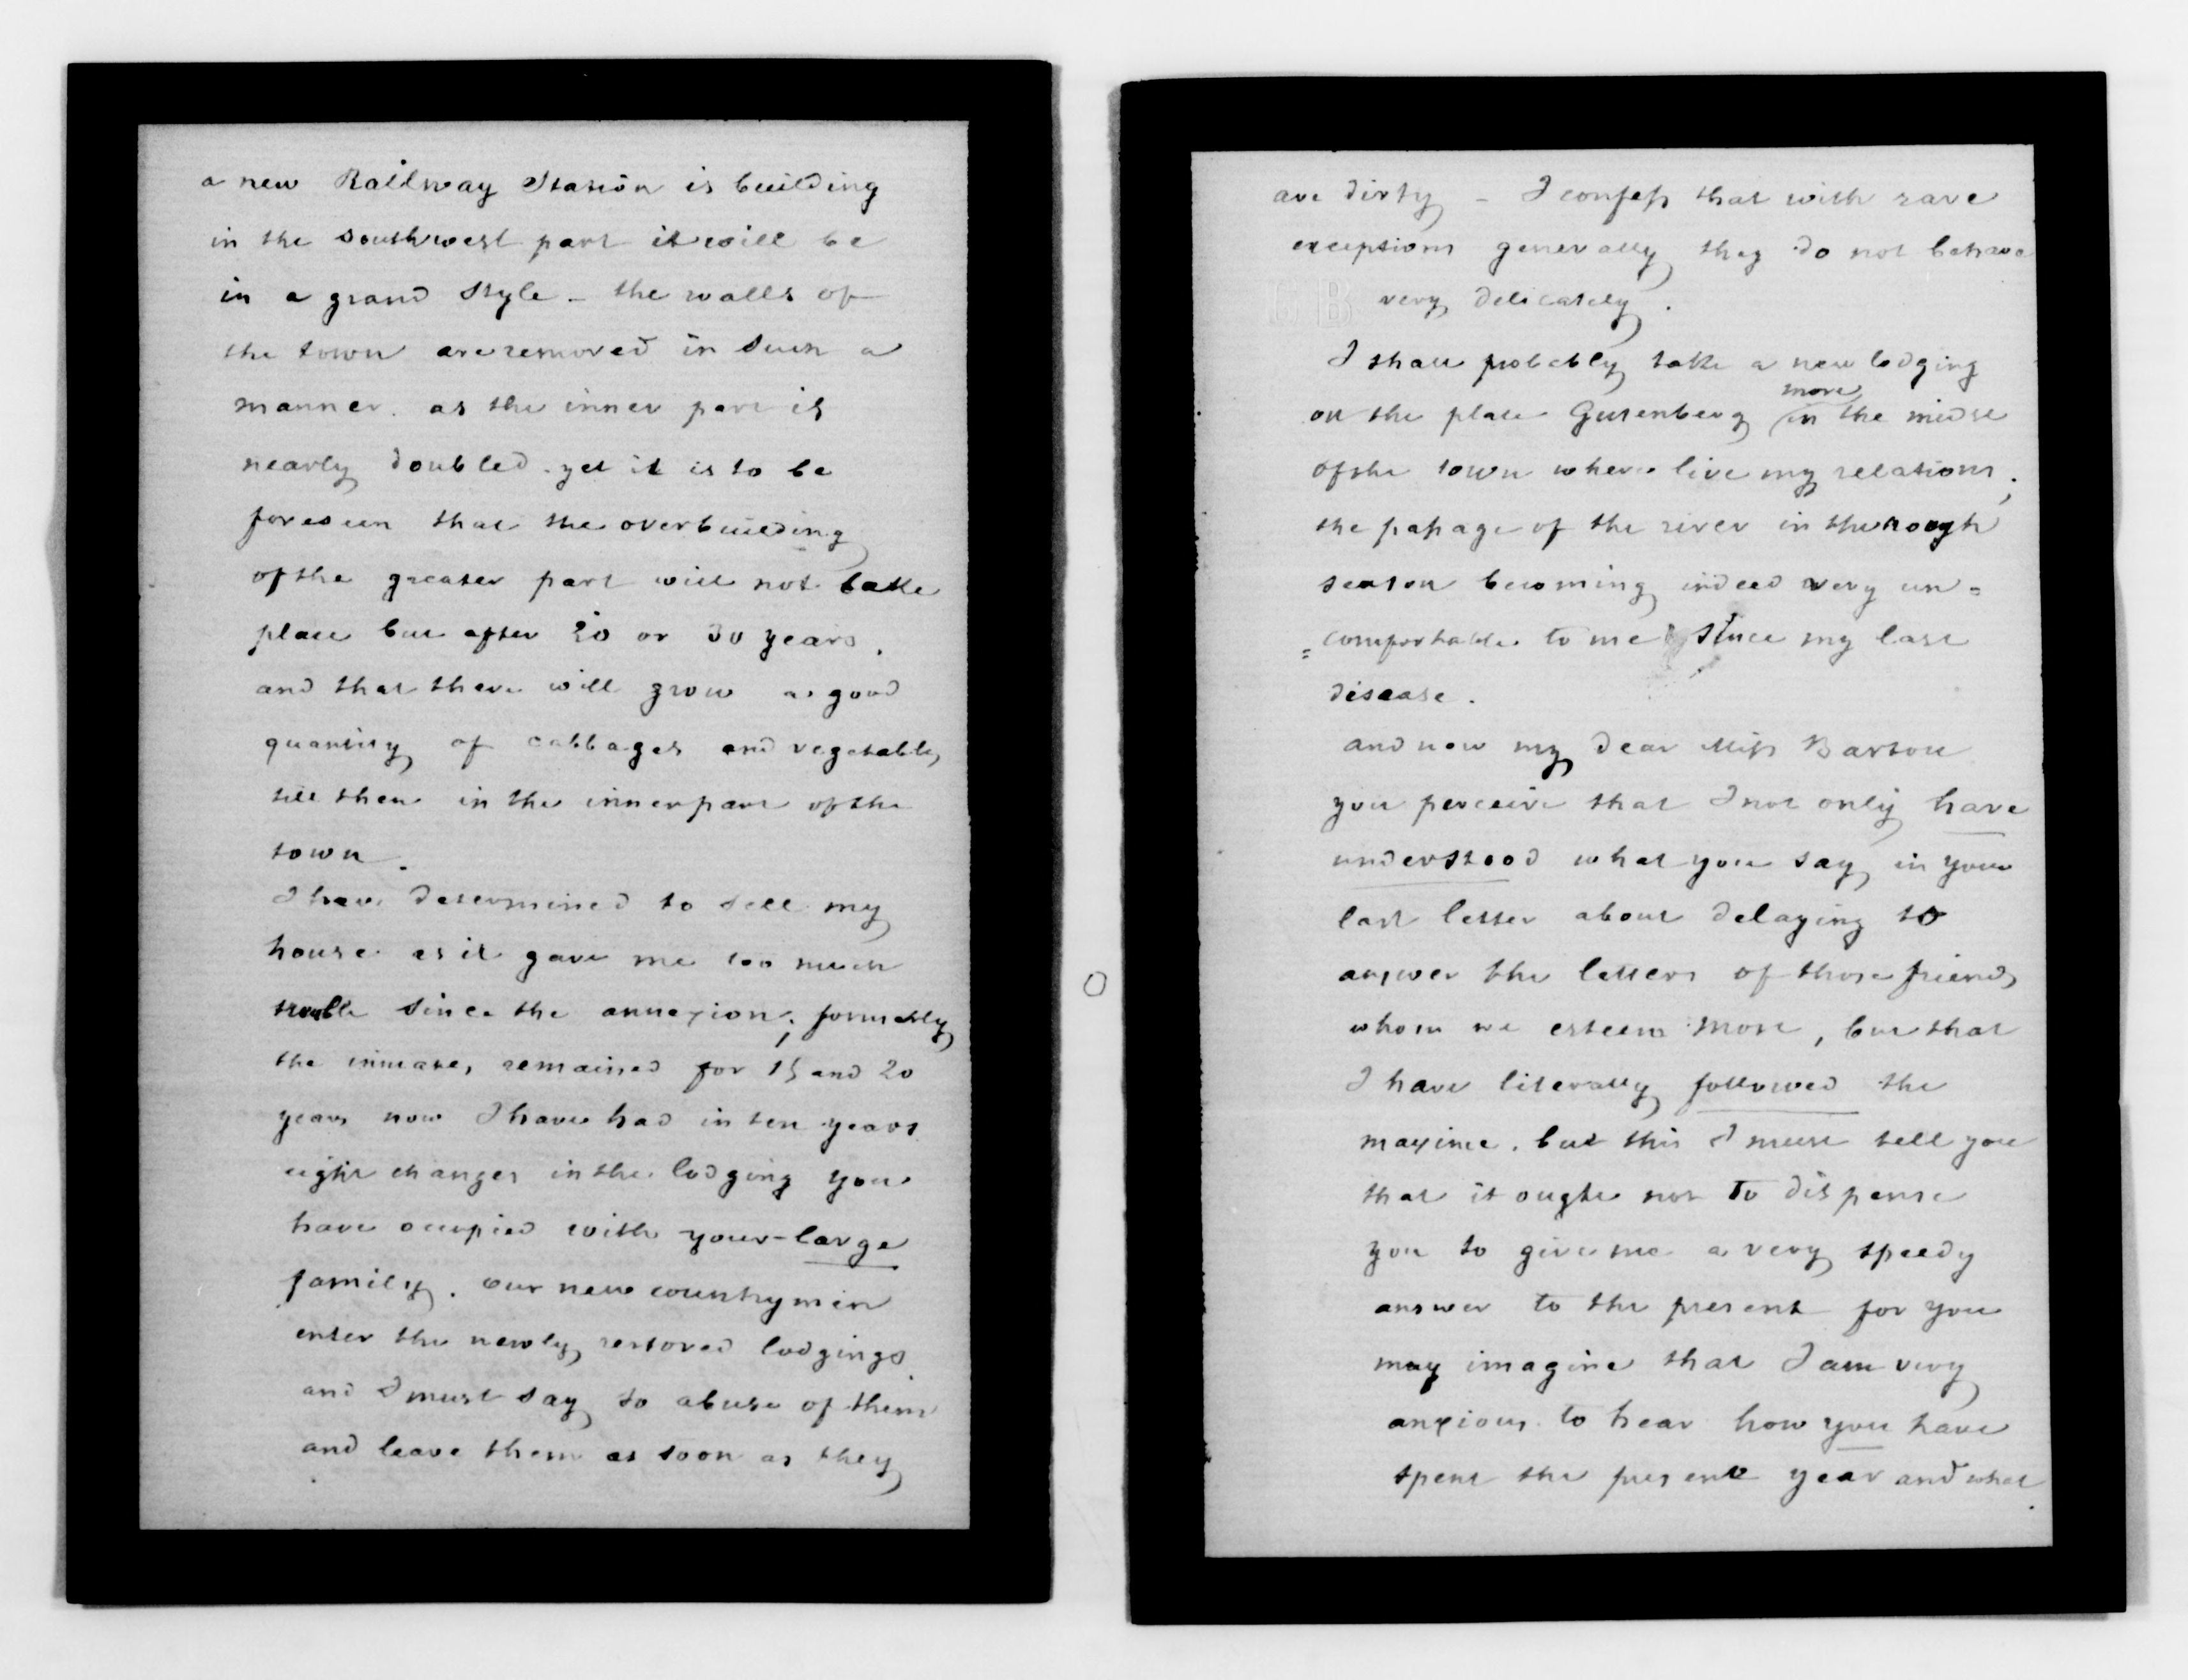 a new Railway Station is building
in the southwest part it will be
in a grand style - the walls of
the town are removed in such a
manner. as the inner part is
nearly doubled. yet it is to be
foreseen that the overbuilding
of the greater part will not take
place but after 20 or 30 years.
and that there will grow a good
quantity of cabbages and vegetables
till then in the inner part of the
town.
I have determined to sell my
house as it gave me too much
trouble since the annexion; formerly
the inmates remained for 15 and 20
years now I have had in ten years
eight changes in the lodging you
have occupied with your large
family. our new countrymen
enter the newly restored lodgings
and I must say so abuse of them
and leave them as soon as they
are dirty - I confess that with rare
exceptions generally they do not behave
very delicately.
I shall probably take a new lodging
more
on the place Gutenberg in the midst
of the town where live my relations;
the passage of the river in the rough
season becoming indeed very un=
=comfortable to me since my last
disease.
and now my dear Miss Barton
you perceive that I not only have
understood what you say in your
last letter about delaying to
answer the letters of those friends
whom we esteem most, but that
I have literally followed the
maxime. but this I must tell you
that it ought not to dispense
you to give me a very speedy
answer to the present for you
may imagine that I am very
anxious to hear how you have
spent the present year and what